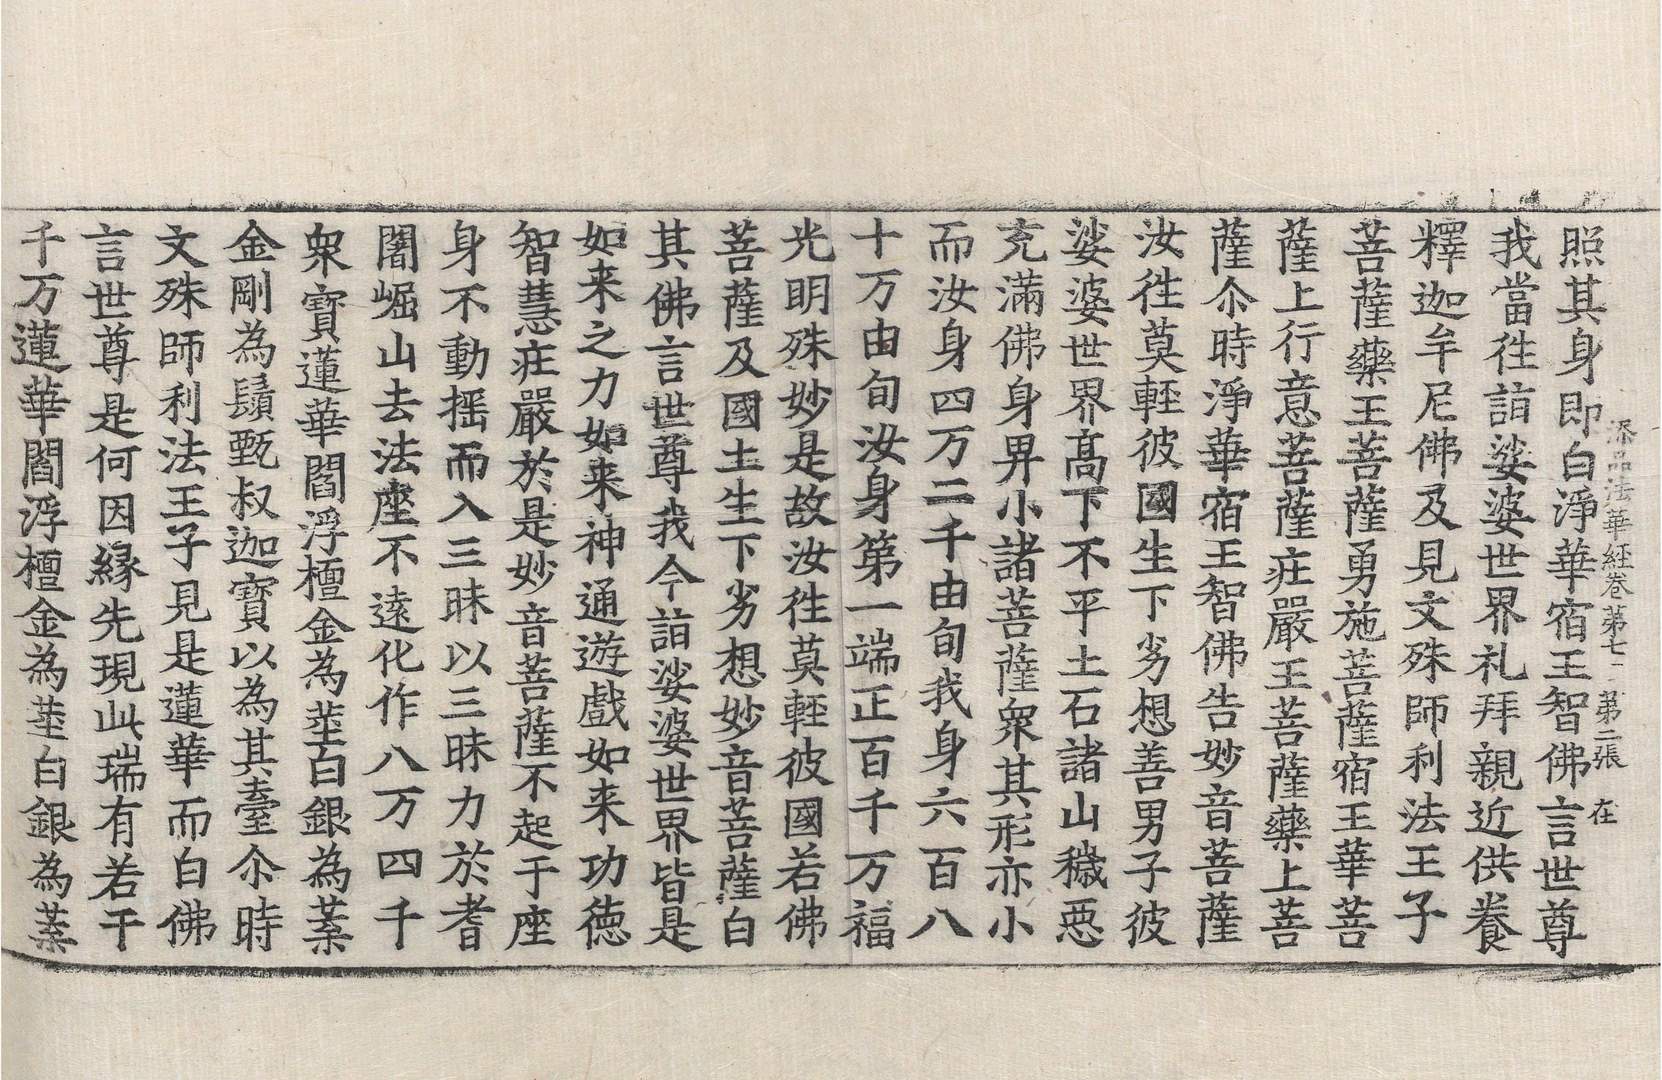 添品法華經卷第七 第二張 在
照其身即白淨華宿王智佛言世尊
我當往詣娑婆世界礼拜親近供養
釋迦牟尼佛及見文殊師利法王子
菩薩藥王菩薩勇施菩薩宿王華菩
薩上行意菩薩莊嚴王菩薩藥上菩
薩尒時淨華宿王智佛告妙音菩薩
汝往莫輕彼國生下劣想善男子彼
娑婆世界髙下不平土石諸山穢惡
充滿佛身卑小諸菩薩衆其形亦小
而汝身四万二千由旬我身六百八
十万由旬汝身第一端正百千万福
光明殊妙是故汝往莫輕彼國若佛
菩薩及國土生下劣想妙音菩薩白
其佛言世尊我今詣娑婆世界皆是
如来之力如来神通遊戲如来功德
智慧莊嚴於是妙音菩薩不起于座
身不動摇而入三昧以三昧力於耆
闍崛山去法座不遠化作八万四千
衆寶蓮華閻浮檀金為莖白銀為葉
金剛為鬚甄叔迦寶以為其臺尒時
文殊師利法王子見是蓮華而白佛
言世尊是何因縁先現此瑞有若干
千万蓮華閻浮檀金為莖白銀為葉